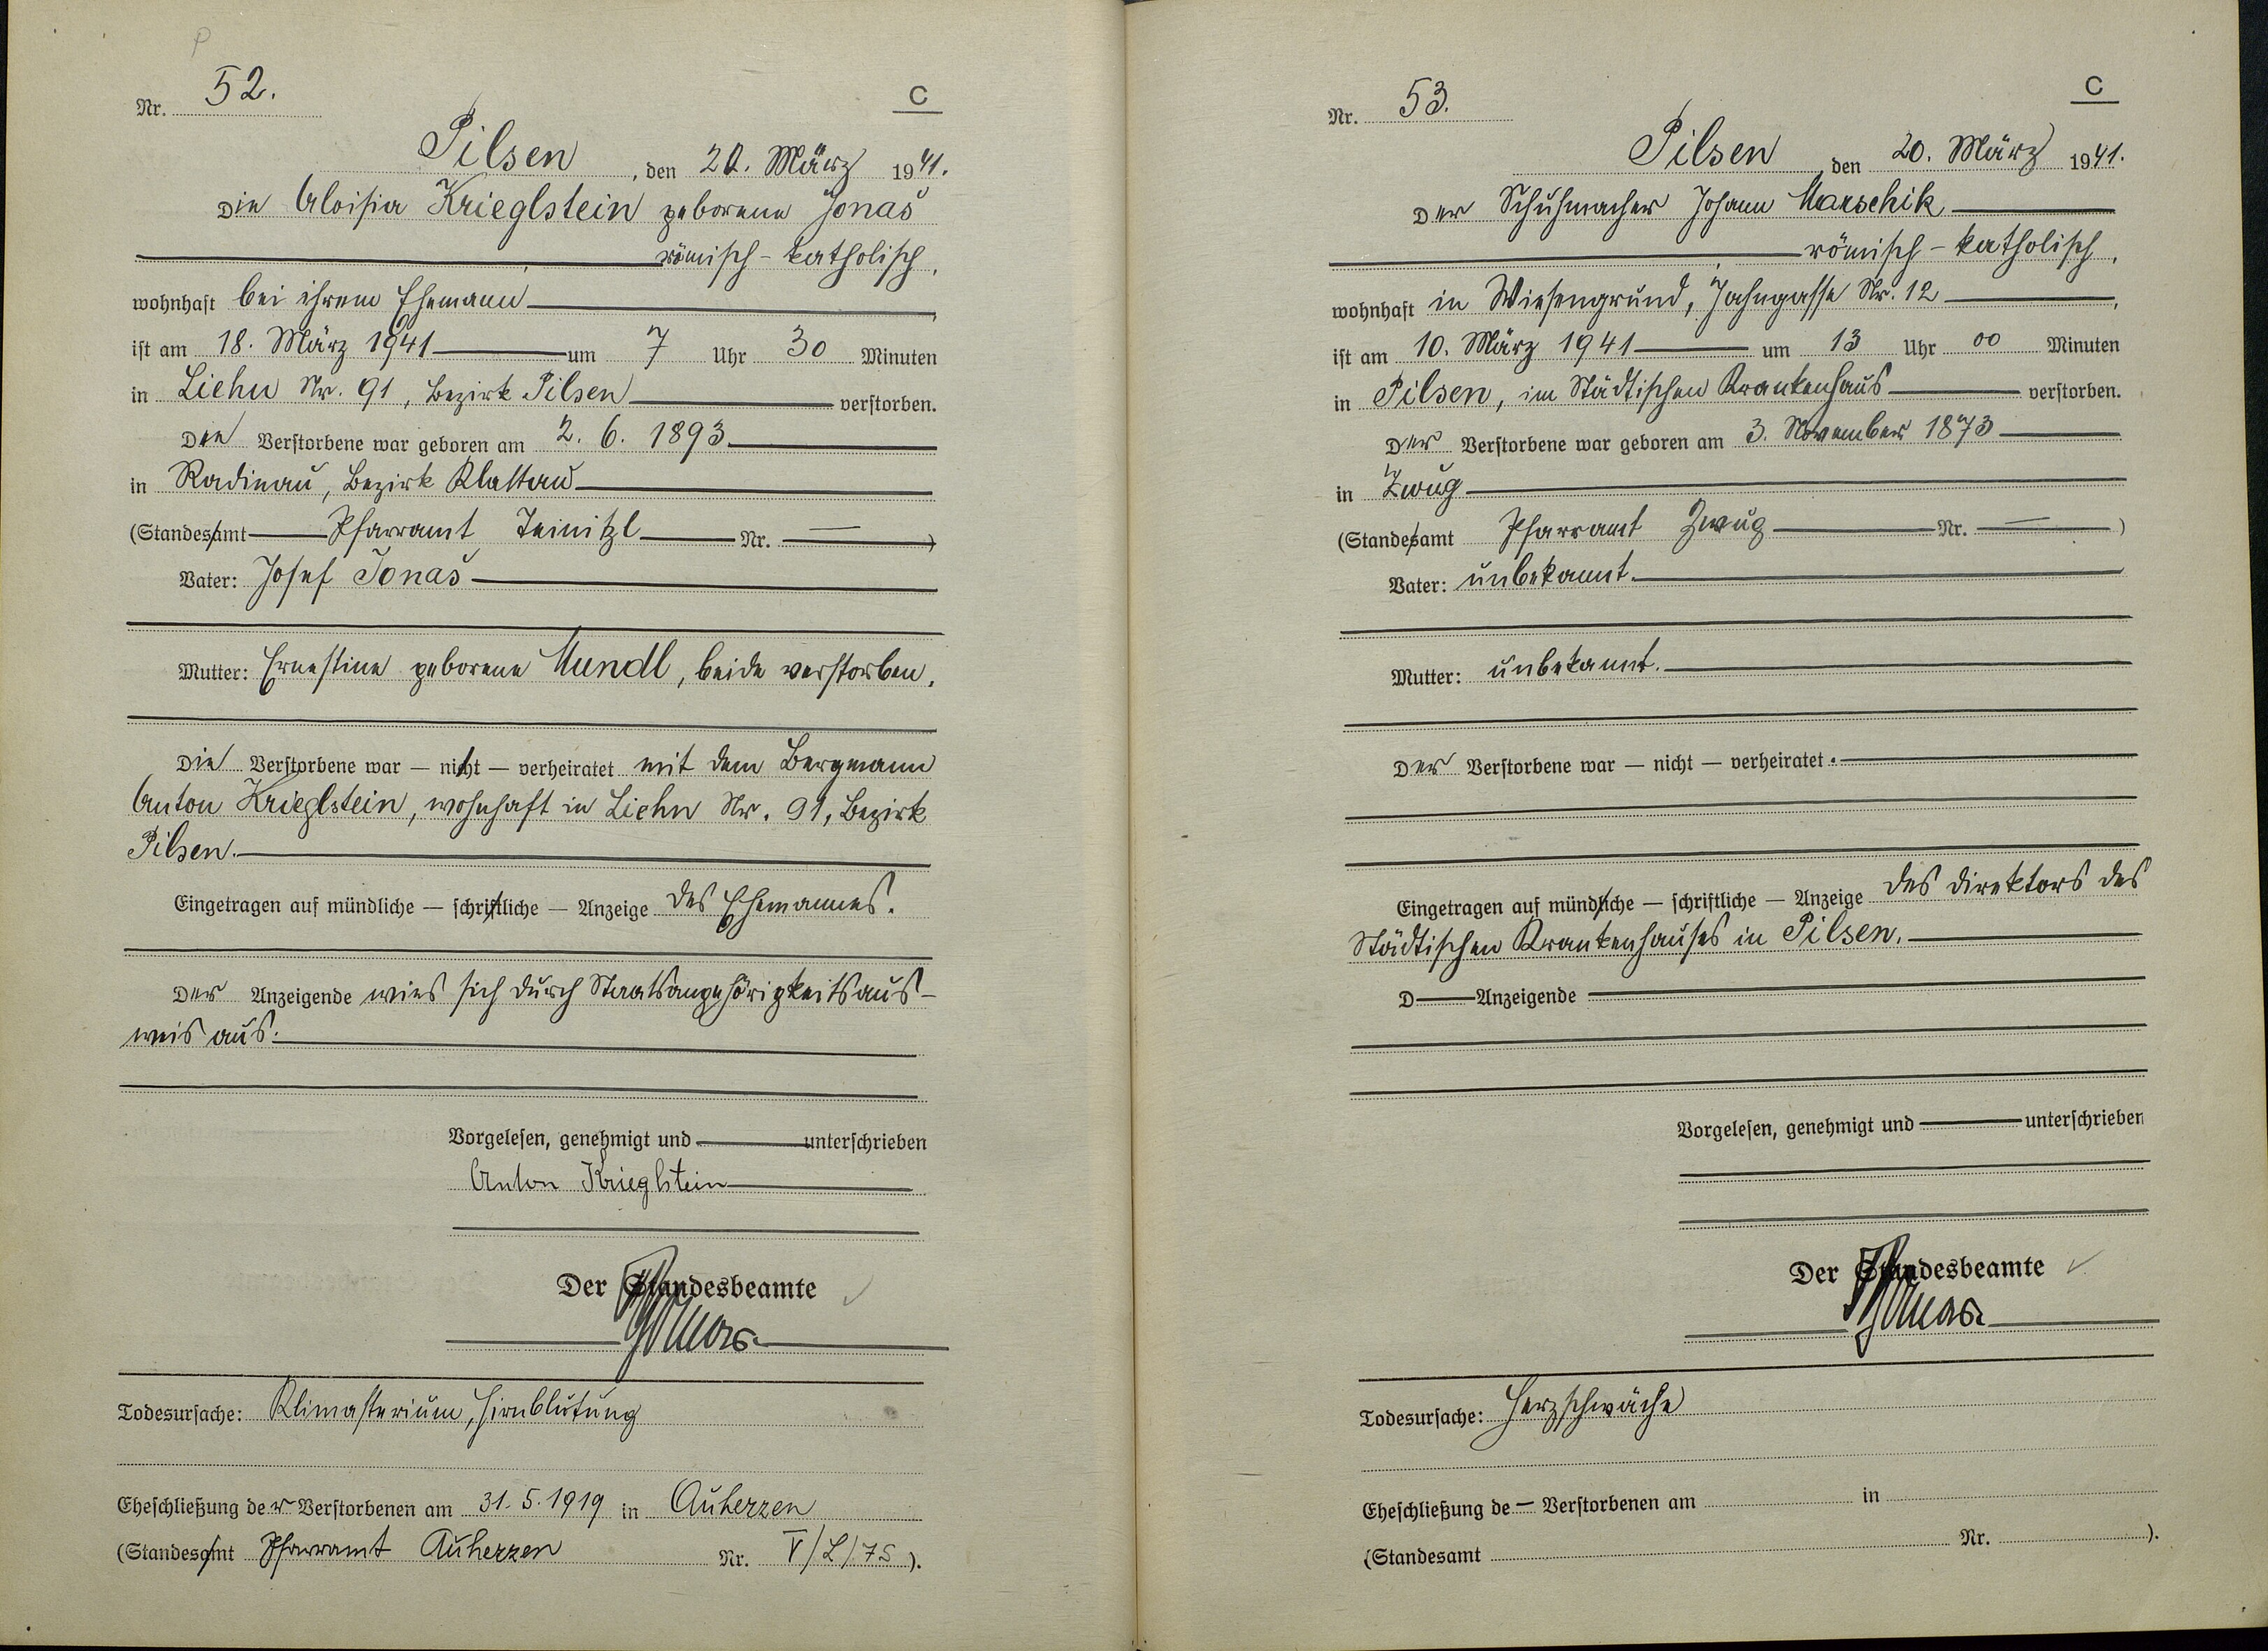 P
Nr. 52.
C
Pilsen, den 20. März 1941.
Die Aloisia Krieglstein geborene Jonaš
römisch-katholisch,
wohnhaft bei ihrem Ehemann
ist am 18. März 1941 um 7 Uhr 30 Minuten
in Liehn Nr. 91, Bezirk Pilsen verstorben.
Die Verstorbene war geboren am 2. 6. 1893.
in Radinau, Bezirk Klattau
(Standesamt Pfarramt Teinitzl Nr. — )
Vater: Josef Jonaš
Mutter: Ernestine geborene Mundl, beide verstorben.
Die Verstorbene war — nicht — verheiratet mit dem Bergmann
Anton Krieglstein, wohnhaft in Liehn Nr. 91, Bezirk
Pilsen.
Eingetragen auf mündliche — schriftliche — Anzeige des Ehemannes.
Der Anzeigende wies sich durch Staatsangehörigkeitsaus-
weis aus.
Vorgelesen, genehmigt und unterschrieben
Anton Krieglstein
Der Standesbeamte
Todesursache: Klimasterium, Hirnblutung
Eheschließung der Verstorbenen am 31. 5. 1919 in Auherzen
(Standesamt Pfarramt Auherzen Nr. V/L/75 ).
Nr. 53.
C
Pilsen den 20. März 1941.
Der Schuhmacher Johann Marschik
römisch-katholisch,
wohnhaft in Wiesengrund, Jahngasse Nr. 12,
ist am 10. März 1941 um 13 Uhr 00 Minuten
in Pilsen, im Städtischen Krankenhaus verstorben.
Der Verstorbene war geboren am 3. November 1873
in Zwug
(Standesamt Pfarramt Zwug Nr. — )
Vater: unbekannt.
Mutter: unbekannt.
Der Verstorbene war — nicht — verheiratet.
Eingetragen auf mündliche — schriftliche — Anzeige des Direktors des
Städtischen Krankenhauses in Pilsen.
D— Anzeigende
Vorgelesen, genehmigt und unterschrieben
Der Standesbeamte
Todesursache: Herzschwäche
Eheschließung de— Verstorbenen am in
(Standesamt Nr. ).